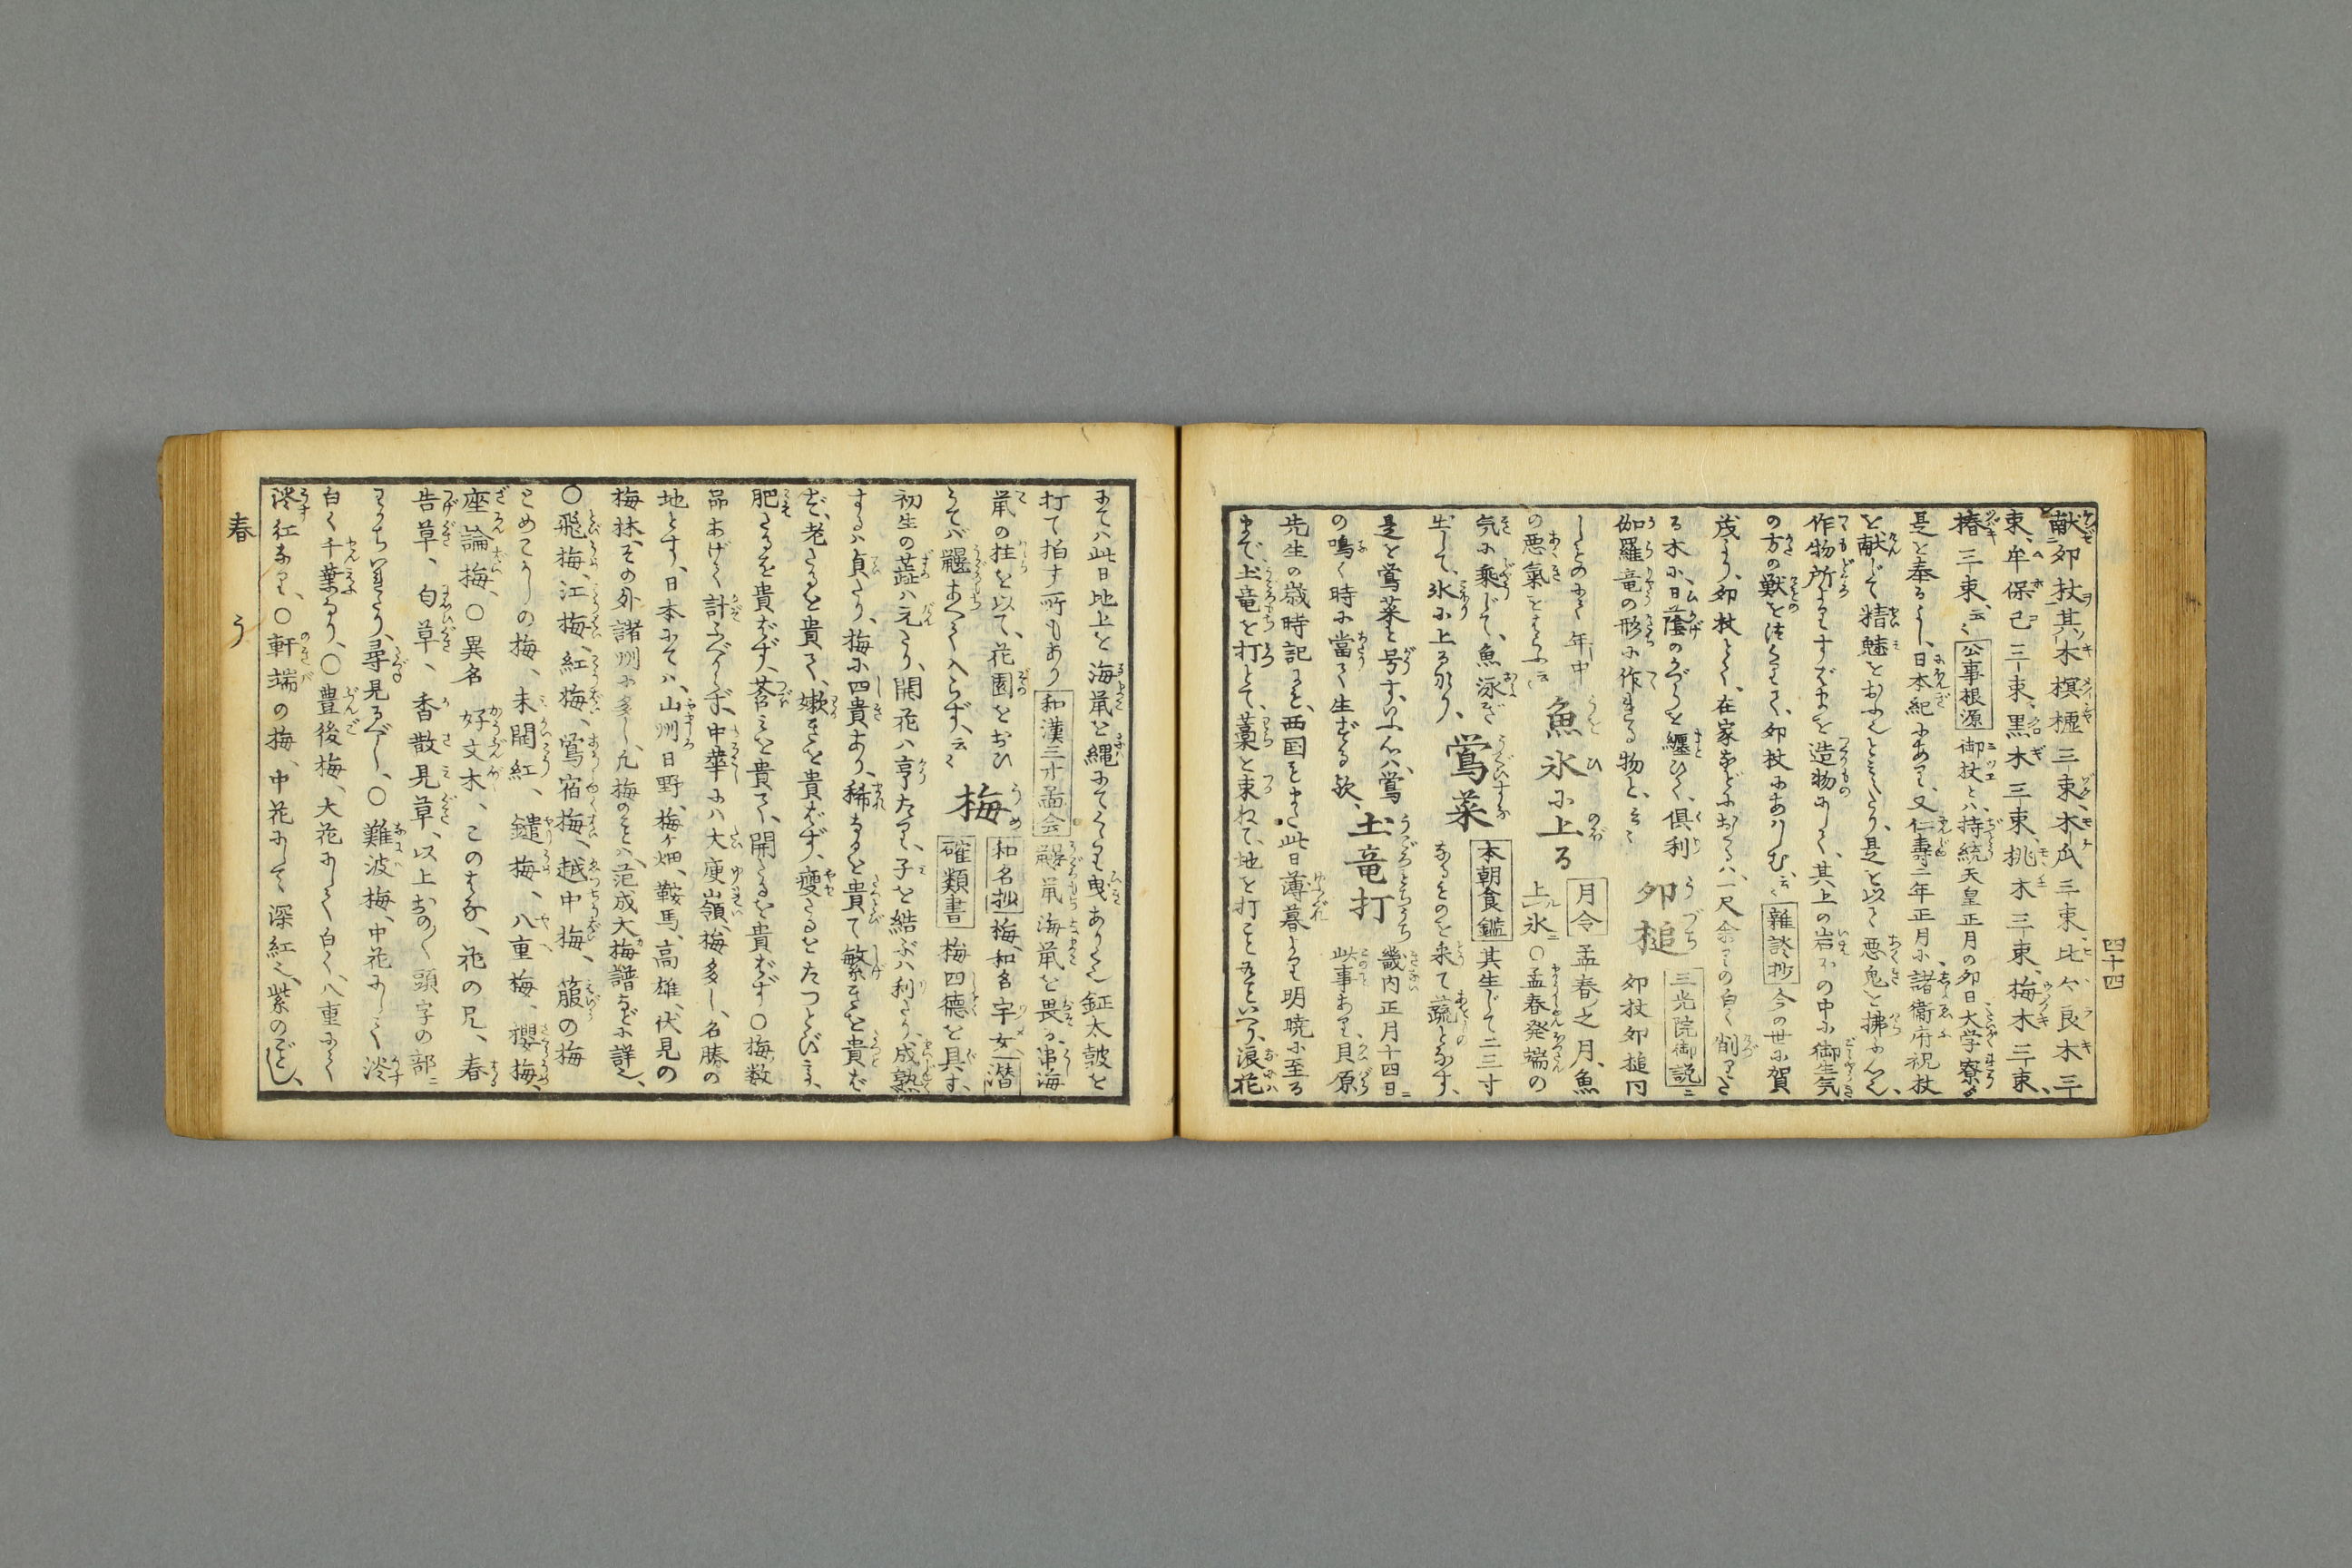 四十四
献卯杖其木榠樝三束、木瓜三束、比々良木三
束、牟保己三束、黒木三束、桃木三束、梅木三束、
椿三束、云々 公事根源 御杖とハ、持統天皇正月の卯日大学寮
是を奉るよし、日本紀にあり、又仁寿二年正月に諸衛府祝杖
を献じて精魅をおふ是を以て悪鬼を拂ふ
作物所よりすはまを造物にして、其上の岩ほの中に御生気
の方の獣をつくりて、卯杖にあはしむ、云々 雑談抄 今の世に賀
茂より、卯杖とて、在家などにおくるハ、一尺余りの白く削りた
る木に、日蔭のかづらを纏ひて、倶利
伽羅竜の形に作れる物と、云々
卯槌 三光院御説ニ
卯杖卯槌同
じものにて年中
の悪氣をはらふ云々
魚氷に上る 月令 孟春之月、魚
上ル氷ニ 〇孟春発端の
気に乗じて、魚泳ぎ
出して、氷に上るなり、
鶯菜 本朝食鑑 其生じて二三寸
なるものを采て蔬となす、
是を鶯菜と号す、いふ心ハ、鶯
の鳴く時に當て生ずる歟、
土竜打 畿内正月十四日ニ
此事あり、貝原
先生の歳時記にも、西国にまた此日薄暮より明暁に至る
まで、土竜を打とて、藁を束ねて、地を打ことをいへり、浪花
にてハ此日地上を海鼠を縄にてくゝり曳ありく又鉦太皷を
打て拍す所もあり 和漢三才圖会 鼹鼠海鼠を畏る、串海
鼠の柱を以て、花園をおひ
うてバ鼹あへて入らず、云々
梅 和名抄 梅、和名宇女 潜
確類書 梅四徳を具す、
初生の蕋ハ元たり、開花ハ亨たり、子を結ぶハ利たり、成熟
するハ貞たり、梅に四貴あり、稀なるを貴て繁きを貴ば
ず、老たるを貴て、嫩きを貴ばず、瘦たるをたつとびて、
肥たるを貴ばず、蕾を貴て、開たるを貴ばず〇梅、数
品あげて計ふべからず、中華にハ大庾嶺、梅多し、名勝の
地とす、日本にてハ、山州日野、梅ヶ畑、鞍馬、高雄、伏見の
梅林、その外諸州に多し、凡梅のことハ、范成大梅譜などに詳也、
〇飛梅、江梅、紅梅、鴬宿梅、越中梅、箙の梅
とめこかしの梅、未開紅、鑓梅、八重梅、櫻梅、
座論梅、〇異名 好文木、このはな、花の兄、春
告草、匂草、香散見草、以上おの〳〵頭字の部ニ
わかちいれたり、尋見るべし、〇難波梅、中花にして淡
白く千葉なり、〇豊後梅、大花にして白く、八重にして
淡紅なり、〇軒端の梅、中花にして深紅也、紫のごとし、
春
う